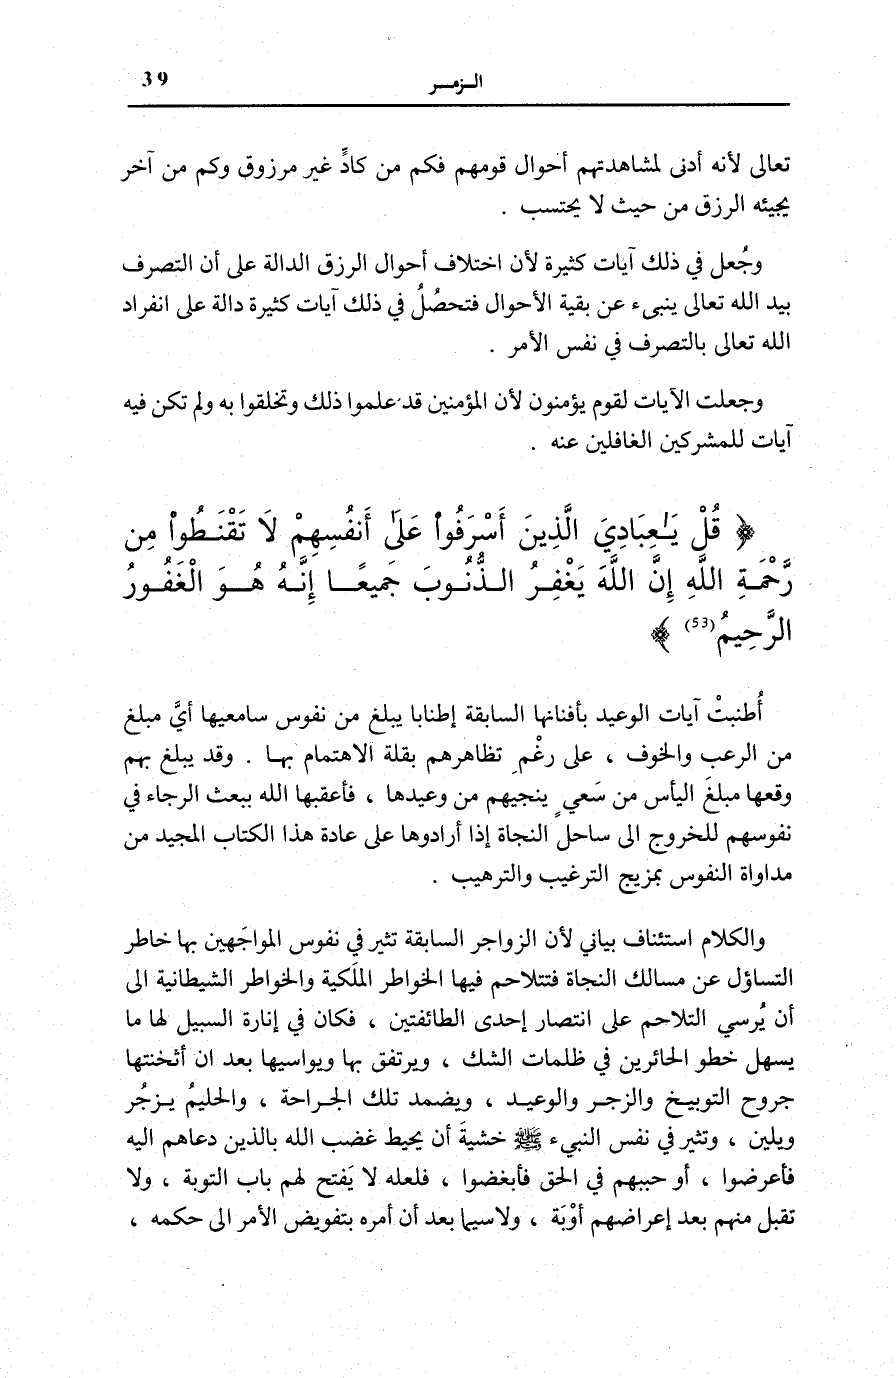 39
الـزمـر
تعالى لأنه أدنى لمشاهدتهم أحوال قومهم فكم من كادٍّ غير مرزوق وكم من آخر
يجيئه الرزق من حيث لا يحتسب .
وجُعل في ذلك آيات كثيرة لأن اختلاف أحوال الرزق الدالة على أن التصرف
بيد الله تعالى ينبىء عن بقية الأحوال فتحصُلُ في ذلك آيات كثيرة دالة على انفراد
الله تعالى بالتصرف في نفس الأمر .
وجعلت الآيات لقوم يؤمنون لأن المؤمنين قد علموا ذلك وتخلقوا به ولم تكن فيه
آيات للمشركين الغافلين عنه .
﴿ قُلْ يَـٰعِبَادِيَ الَّذِينَ أَسْرَفُواْ عَلَىٰ أَنفُسِهِمْ لَا تَقْنَـطُواْ مِن
رَّحْمَـةِ اللَّهِ إِنَّ اللَّهَ يَغْفِـرُ الـذُّنُـوبَ جَمِيعًـا إِنَّـهُ هُـوَ الْغَفُـورُ
الرَّحِيمُ (53) ﴾
أُطنبتْ آيات الوعيد بأفنانها السابقة إطنابا يبلغ من نفوس سامعيها أيَّ مبلغ
من الرعب والخوف ، على رغْمِ تظاهرهم بقلة الاهتمام بها . وقد يبلغ بهم
وقعها مبلغَ اليأس من سَعيٍ ينجيهم من وعيدها ، فأعقبها الله ببعث الرجاء في
نفوسهم للخروج الى ساحل النجاة إذا أرادوها على عادة هذا الكتاب المجيد من
مداواة النفوس بمزيج الترغيب والترهيب .
والكلام استئناف بياني لأن الزواجر السابقة تثير في نفوس المواجَهين بها خاطر
التساؤل عن مسالك النجاة فتتلاحم فيها الخواطر الملَكية والخواطر الشيطانية الى
أن يُرسي التلاحم على انتصار إحدى الطائفتين ، فكان في إنارة السبيل لها ما
يسهل خطو الحائرين في ظلمات الشك ، ويرتفق بها ويواسيها بعد ان أثخنتها
جروح التوبيـخ والزجـر والوعيـد ، ويضمد تلك الجـراحة ، والحليمُ يـزجُر
ويلين ، وتثير في نفس النبيء ﷺ خشيةَ أن يحيط غضب الله بالذين دعاهم اليه
فأعرضوا ، أو حببهم في الحق فأبغضوا ، فلعله لا يَفتح لهم باب التوبة ، ولا
تقبل منهم بعد إعراضهم أوْبَة ، ولاسيما بعد أن أمره بتفويض الأمر الى حكمه ،